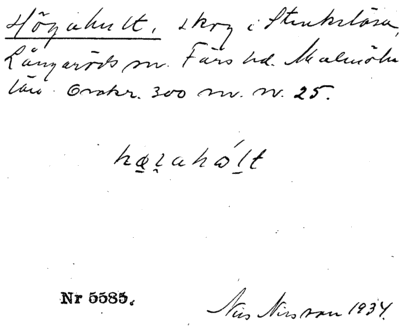 Högahult, skog i Stenkilstorp,
Långaröds sn. Färs hd. Malmöhus
län. Onskr. 300 m. n. 25.
høɀahólt
Nr 5585.
Nils Nilsson 1934.